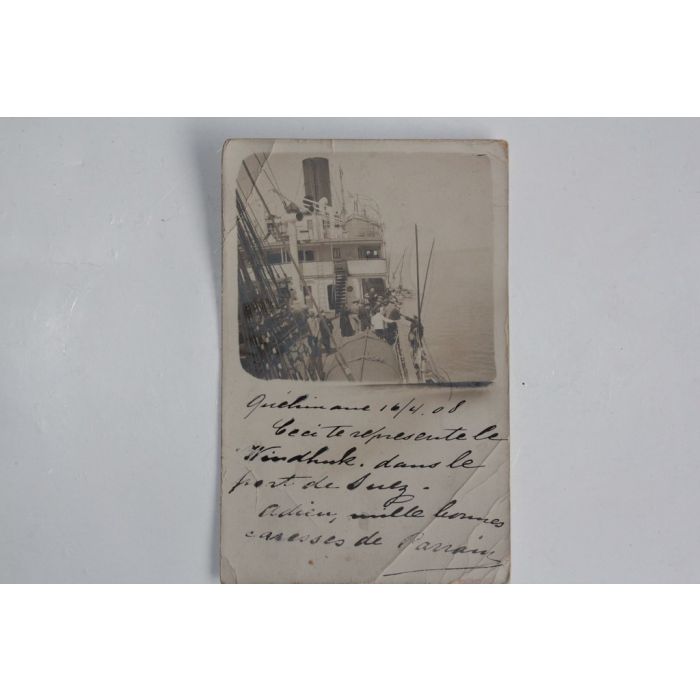 Quélimane 16/4.08
Ceci te represente le
Windhuk. dans le
port de Suez -
Adieu, mille bonnes
caresses de Parrain